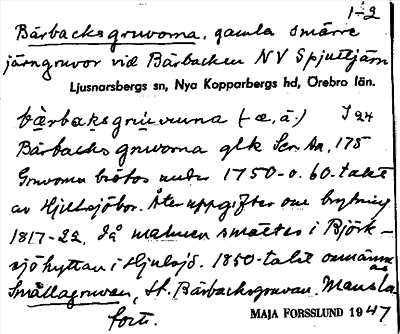 1-2
Bärbacksgruvorna, gamla smärre
järngruvor vid Bärbacken NV Spjuttjärn
Ljusnarsbergs sn, Nya Kopparbergs hd, Örebro län.
bärbaksgruvuna (-æ, ä.) I 24
Bärbacks gruvorna glk Ser. Aa, 175
Gruvorna brötos under 1750- o. 60-talet
av Hjulsjöbor. Återuppgifter om brytning
1817-22, då malmen smältes i Björk-
sjöhyttan i Hjulsjö. 1850-talet omnämnes
Smällagruvan, St. Bärbacksgruvan,
forts.
MAJA FORSSLUND 1947